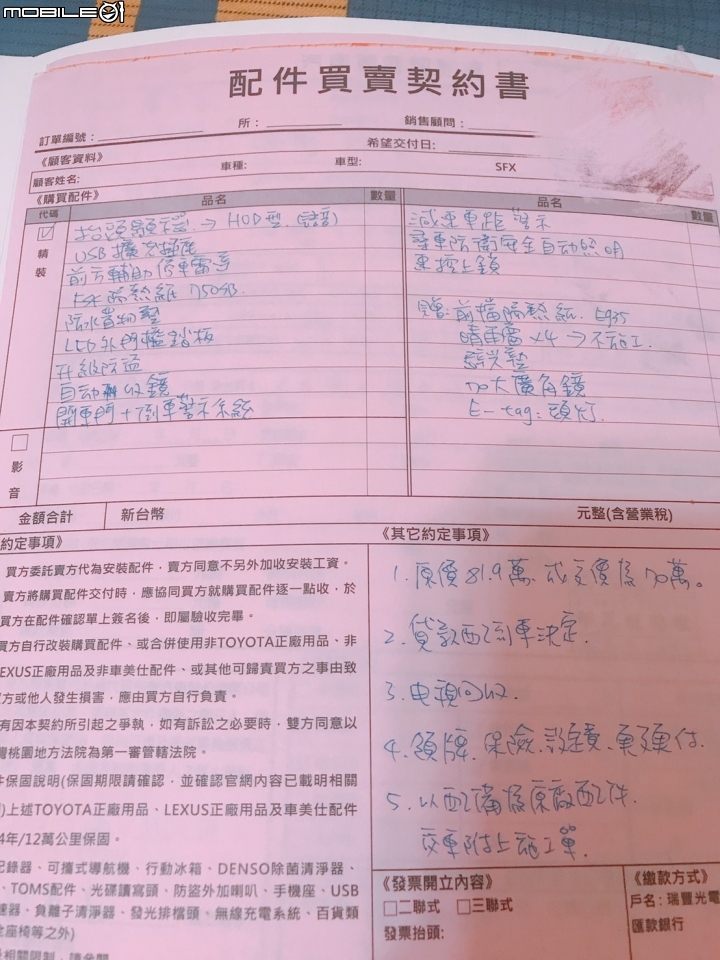 mobile01
配件買賣契約書
訂單編號：
所：
銷售顧問：
希望交付日：
《顧客資料》
顧客姓名:
車種:
車型:
SFX
《購買配件》
代碼
品名
數量
品名
數量
精裝
抬頭顯示器 → HUD型
USB擴充插座
前方輔助停車雷達
FSK隔熱紙
防水置物墊
LED外門檻踏板
升級防盜
自动收鏡
開車門+倒車警示系統
減速車距警示
尋車防衛安全自動照
車控上鎖
贈:前檔隔熱紙. E935
晴雨窗x4→不施工.
避光墊
大廣角鏡
E-tag:頭灯.
影音
金額合計
新台幣
元整(含營業稅)
約定事項》
買方委託賣方代為安裝配件，賣方同意不另外加收安裝工資。
賣方將購買配件交付時，應協同買方就購買配件逐一點收，於
買方在配件確認單上簽名後，即屬驗收完畢。
買方自行改裝購買配件、或合併使用非TOYOTA正廠用品、非
EXUS正廠用品及非車美仕配件、或其他可歸責買方之事由致
方或他人發生損害，應由買方自行負責。
有因本契約所引起之爭執，如有訴訟之必要時，雙方同意以
灣桃園地方法院為第一審管轄法院。
件保固說明(保固期限請確認，並確認官網內容已載明相關
)上述TOYOTA正廠用品、LEXUS正廠用品及車美仕配件
4年/12萬公里保固。
記錄器、可攜式導航機、行動冰箱、DENSO除菌清淨器、
、TOMS配件、光碟讀寫頭、防盜外加喇叭、手機座、USB
速器、負離子清淨器、發光排檔頭、無線充電系統、百貨類
座椅等之外)
《其它約定事項》
1. 原價81.9萬 成交價為70萬。
2. 貸款配合車決定.
3. 电視回收.
4. 領牌.保險.設定費.更更付.
5. 以配備為原廠配件.
交車附上施工單.
《發票開立內容》
二聯式
三聯式
發票抬頭:
《繳款方式》
戶名: 瑞豐光電
匯款銀行